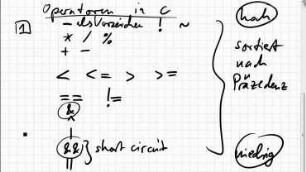 Operatoren in C
1 - als Vorzeichen ! ~
* / %
+ -
< <= > >=
== !=
&
|
&& } short circuit
||
hoch
sortiert
nach
Präzedenz
niedrig